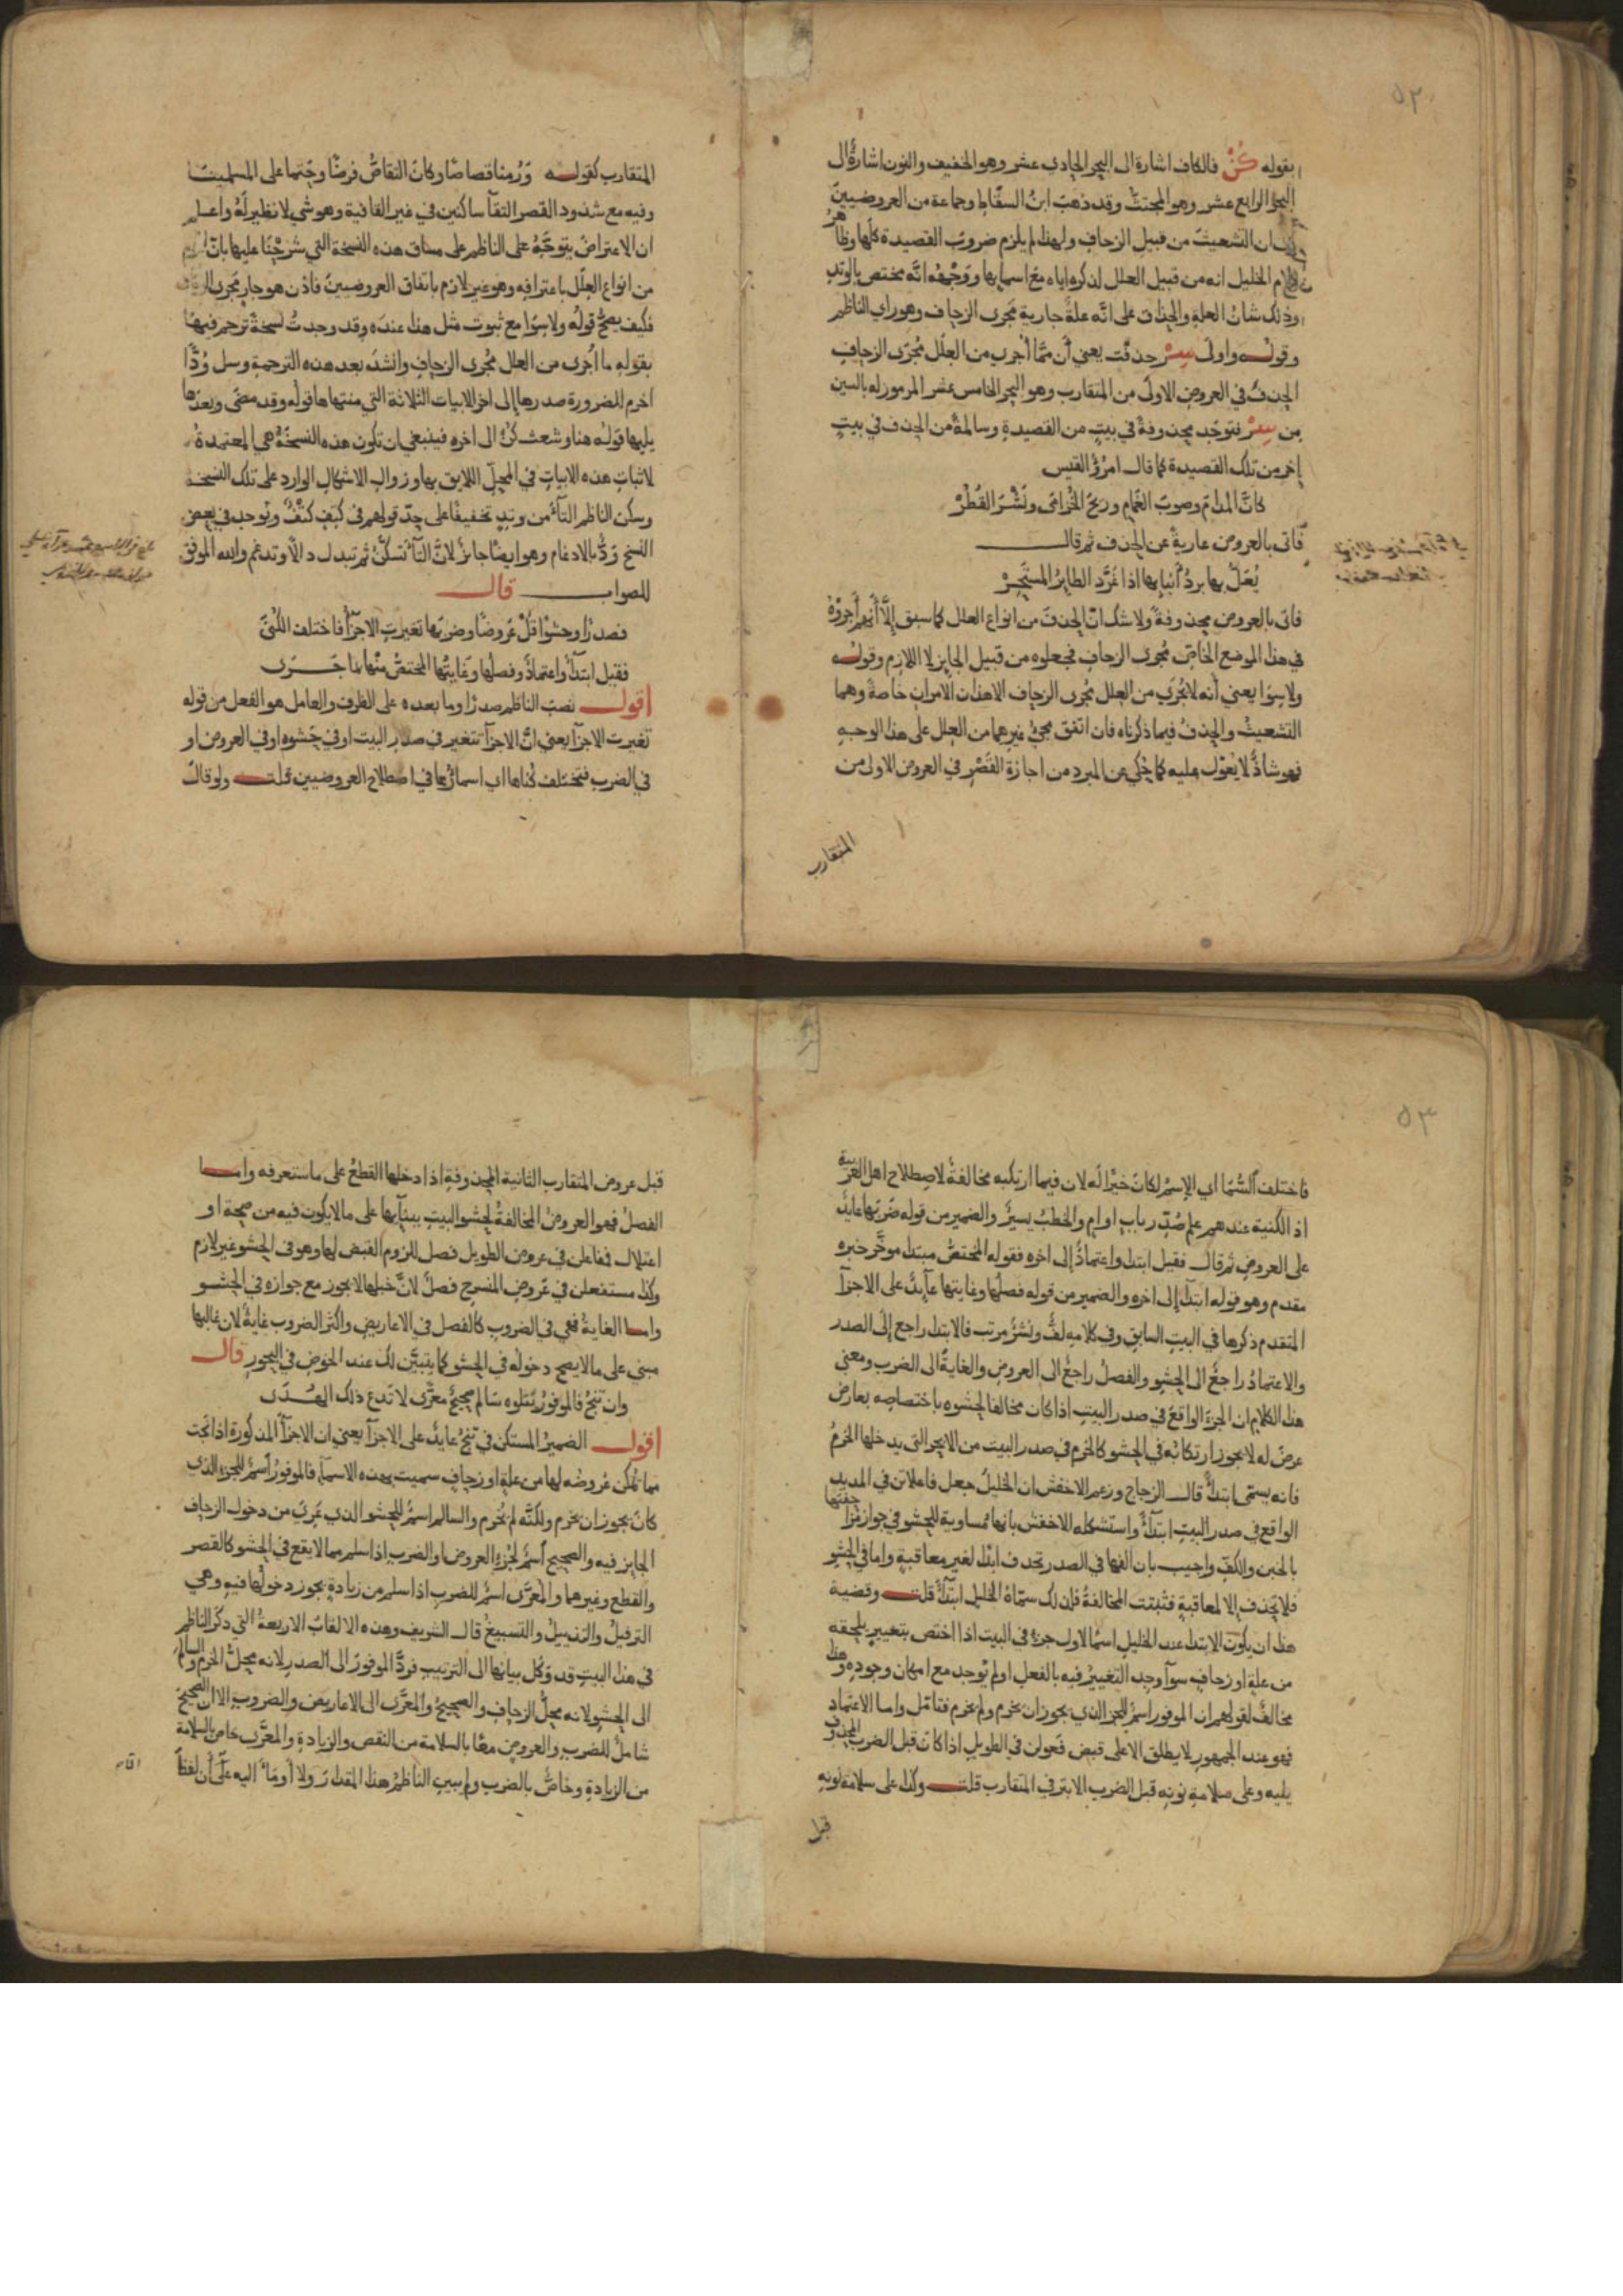 ٥٢
بقوله كُنْ فالكاف اشارة الى البحر الحادي عشر وهو الخفيف والنون اشارة الى
البحر الرابع عشر وهو المجتث وقد ذهب ابن السقاط وجماعة من العروضيين
ان التشعيث من قبيل الزحاف ولهذا لم يلزم ضروب القصيدة كلها وظاهر
كلام الخليل انه من قبيل العلل لذكره اياه مع اسمايها ووجهه انه مختص بالوتد
وذلك شان العلة والحذاق على انه علة جارية مجرى الزحاف وهو راي الناظم
وقولـــه واولى سِرْ حذفت يعني أن مما أجري من العلل مُجرى الزحاف
الحذف في العروض الاولى من المتقارب وهو البحر الخامس عشر المرموز له بالسين
من سِرْ فتوجد محذوفة في بيت من القصيدة وسالمة من الحذف في بيت
اخر من تلك القصيدة كما قال امرؤ القيس
كانّ المدام وصوب الغمام وريح الخزامى ونشر القُطُرْ
فاتى بالعروض عارية عن الحذف ثم قالـــ
يُعَلّ بها بردُ أنيابها اذا غرّد الطاير المستحِرْ
فاتى بالعروض محذوفة ولا شك ان الحذف من انواع العلل كما سبق إلا أنهم أجروه
في هذا الموضع الخاص مُجرى الزحاف فجعلوه من قبيل الجايز لا اللازم وقولـــه
ولا سِوَا يعني أنه لا يُجرَى من العلل مُجرى الزحاف الا هذان الامران خاصة وهما
التشعيث والحذف فيما ذكرناه فان اتفق مجئ غيرهما من العلل على هذا الوجه
فهو شاذّ لا يعوّل عليه كما حُكي عن المبرد من اجازة القصر في العروض الاولى من
المتقارب
المتقارب كقولـــه ورُمنا قصاصًا وكان التقاصُّ فرضًا وحتما على المسلمينـا
وفيه مع شذوذ القصر التقآ ساكنين في غير القافية وهو شي لا نظير له واعلم
ان الاعتراض يتوجّه على الناظم على مساق هذه النسخة التي شرحنا عليها بانّ
من انواع العلل باعترافه وهو غير لازم باتفاق العروضيين فاذن هو جار مجرى
فكيف يصح قوله ولا سِوَا مع ثبوت مثل هذا عنده وقد وجدت نسخة ترجم فيها
بقوله ما أجرى من العلل مُجرى الزحاف وانشد بعد هذه الترجمة وسل وُدًّا
اخرم للضرورة صدرها إلى اخر الابيات الثلاثة التي منتهاها قوله وقد مضى وبعدها
يليها قوله هنا وشعث كنْ الى اخره فينبغي ان تكون هذه النسخة هي المعتمدة
لاثبات هذه الابيات في المحل اللايق بها وزوال الاشكال الوارد على تلك النسخة
وسكن الناظم التآ من وتد تخفيفا على حدّ قولهم في كتِف كتْفٌ ويوجد في بعض
النسخ ودٌّ بالادغام وهو ايضا جايز لانّ التآ تسكّن ثم تبدل دالا وتدغم والله الموفق
للصواب ـــ قالـــ
فصدرًا وحشوا قلْ عروضًا وضربها تغيرت الاجزآ فاختلف الكُنَى
فقيل ابتدآ واعتماد وفصلها وغايتها المختص منها بما جـــرى
أقولـــ نصب الناظم صدرًا وما بعده على الظرف والعامل هو الفعل من قوله
تغيرت الاجزآ يعني انّ الاجزآ تتغير في صدر البيت او في حشوه او في العروض او
في الضرب فتختلف كُناها اي اسماؤها في اصطلاح العروضيين قلتـــ ولو قال
٥٣
فاختلف السُّمَا اي الإسم لكان خيرًا له لان فيما ارتكبه مخالفة لاصطلاح اهل العربية
اذ الكنية عندهم علم صُدّر باب او ام والخطب يسير والضمير من قوله ضربها عايد
على العروض ثم قالـــ فقيل ابتدا واعتماد إلى اخره فقوله المختص مبتدا مؤخر خبره
مقدم وهو قوله ابتدآ إلى اخره والضمير من قوله فصلها وغايتها عايد على الاجزآ
المتقدم ذكرها في البيت السابق وفي كلامه لفٌّ ونشرٌ مرتب فالابتدا راجع إلى الصدر
والاعتماد راجع الى الحشو والفصل راجع الى العروض والغاية الى الضرب ومعنى
هذا الكلام ان الجزء الواقع في صدر البيت اذا كان مخالفا لحشوه باختصاصه بعارض
عرض له لا يجوز ارتكابه في الحشو كالخرم في صدر البيت من الابحر التي يدخلها الخرم
فانه يسمى ابتداءً قالـــ الزجاج وزعم الاخفش ان الخليل جعل فاعلاتن في المديد
الواقع في صدر البيت ابتدآ واستشكله الاخفش بانها مساوية للحشو في جواز زحفتها
بالخبن والكف واجيب بان الفها في الصدر تحذف ابدا لغير معاقبة واما في الحشو
فلا تحذف إلا لمعاقبة فثبتت المخالفة فلذلك سمّاهُ الخليل ابتدآ قلتـــ وقضية
هذا ان يكون الابتدا عند الخليل اسما لاول جزء في البيت اذا اختص بتغيير يلحقه
من علة او زحاف سوآ وجد التغيير فيه بالفعل او لم يوجد مع امكان وجوده وهذا
مخالف لقولهم ان الموفور اسم للجزء الذي يجوز ان يخرم ولم يخرم فتامّل واما الاعتماد
فهو عند الجمهور لا يطلق الا على قبض فعولن في الطويل اذا كان قبل الضرب المحذوف
يليه وعلى سلامة نونه قبل الضرب الابتر في المتقارب قلتـــ وكذا على سلامة نونه
قبل
قبل عروض المتقارب الثانية المحذوفة اذا دخلها القطع على ما ستعرفه وامـــا
الفصل فهو العروض المخالفة لحشو البيت ببنآيها على ما لا يكون فيه من صحة او
اعتلال فمفاعلن في عروض الطويل فصل للزوم القبض لها وهو في الحشو غير لازم
وكذا مستفعلن في عروض المنسرح فصل لانّ خبلها لا يجوز مع جوازه في الحشـــو
وامـــا الغاية فهي في الضروب كالفصل في الاعاريض واكثر الضروب غاية لان غالبها
مبني على ما لا يصح دخوله في الحشو كما يتبيّن لك عند الخوض في البحور قالـــ
وان تنجُ فالموفور يتلوه سالم صحيحٌ معرًّى لا تدع ذلك الهُـــدى
اقولـــ الضمير المستكن في تنجُ عايد على الاجزآ يعني ان الاجزآ المذكورة اذا نجت
مما تمكن عروضه لها من علة او زحاف سميت بهذه الاسمآ فالموفور اسم للجزء الذي
كان يجوز ان يخرم ولكنّه لم يُخرم والسالم اسم للحشو الذي عَرِيَ من دخول الزحاف
الجايز فيه والصحيح اسم لجزء العروض او الضرب اذا سلم مما لا يقع في الحشو كالقصر
والقطع وغيرهما والمعرّى اسم للضرب اذا سلم من زيادة يجوز دخولها فيه وهي
الترفيل والتذييل والتسبيغ قالـــ الشريف وهذه الالقاب الاربعة التي ذكر الناظم
في هذا البيت قد وَكل بيانها الى الترتيب فردّ الموفور الى الصدر لانه محل الخرم والسالم
الى الحشو لانه محل الزحاف والصحيح والمعرّى الى الاعاريض والضروب الا ان الصحيح
شامل للضرب والعروض معًا بالسلامة من النقص والزيادة والمعرّى خاص بالسلامة
من الزيادة وخاصّ بالضرب ولم يبين الناظم هذا المقدار ولا أومأ اليه على أن لفظ